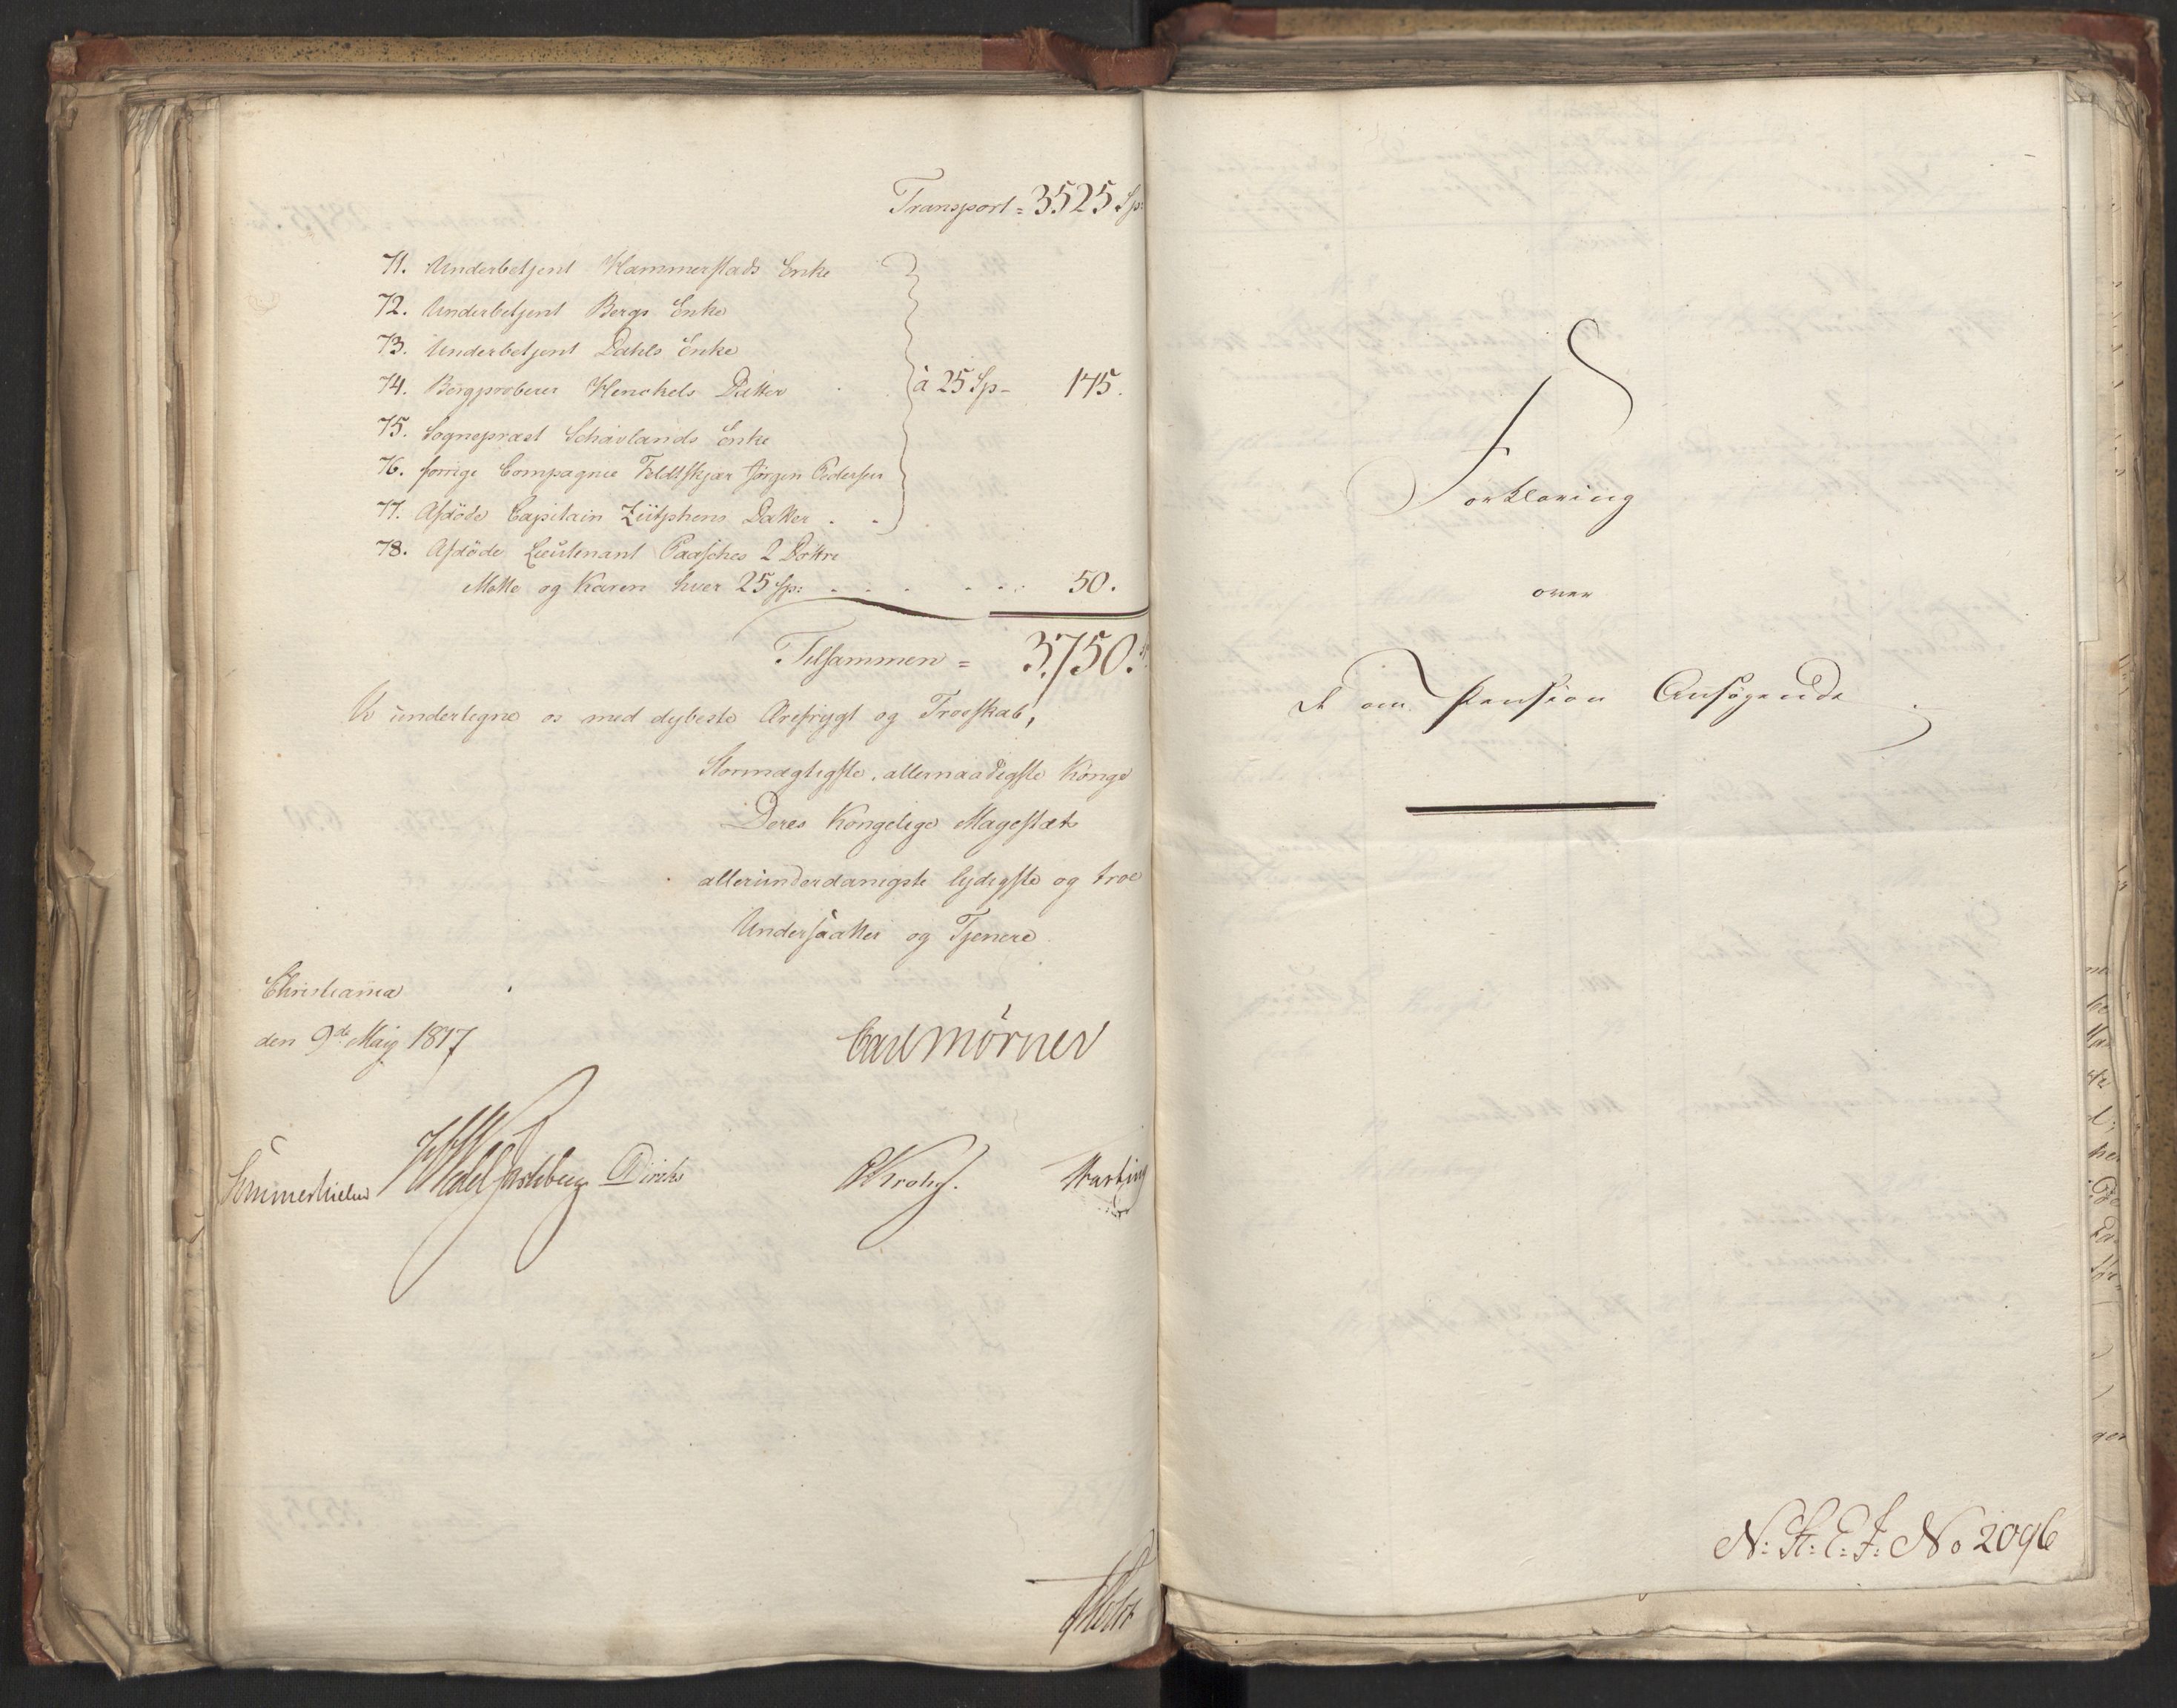 Transport = 3525 Sp:
71. Underbetjent Hammerstads Enke
72. Underbetjent Bergs Enke
73. Underbetjent Dahls Enke
74. Bergproberer Henckels Datter . à 25 Sp - 175.
75. Sognepræst Schavlands Enke
76. forrige Compagnie Feldtskjær Jörgen Pedersen
77. Afdöde Capitain Zütphens Datter . .
78. Afdöde Lieutenant Paasches 2 Döttre
Mette og Karen hver 25 Sp: . . . . . . 50.
Tilsammen = 3,750.
Vi undertegne os med dybeste Ærefrygt og Troeskab,
Stormægtigste, allernaadigste Konge
Deres Kongelige Magestæts
allerunderdanigste lydigste og troe
Undersaatter og Tjenere
Christiania
den 9de Maij 1817
Carl Mörner
Sommerhielm Wedel Jarlsberg Diriks Krohg. Hasting
Holst
Forklaring
over
de om Pension Ansøgende.
N: St: C: J: No 2096